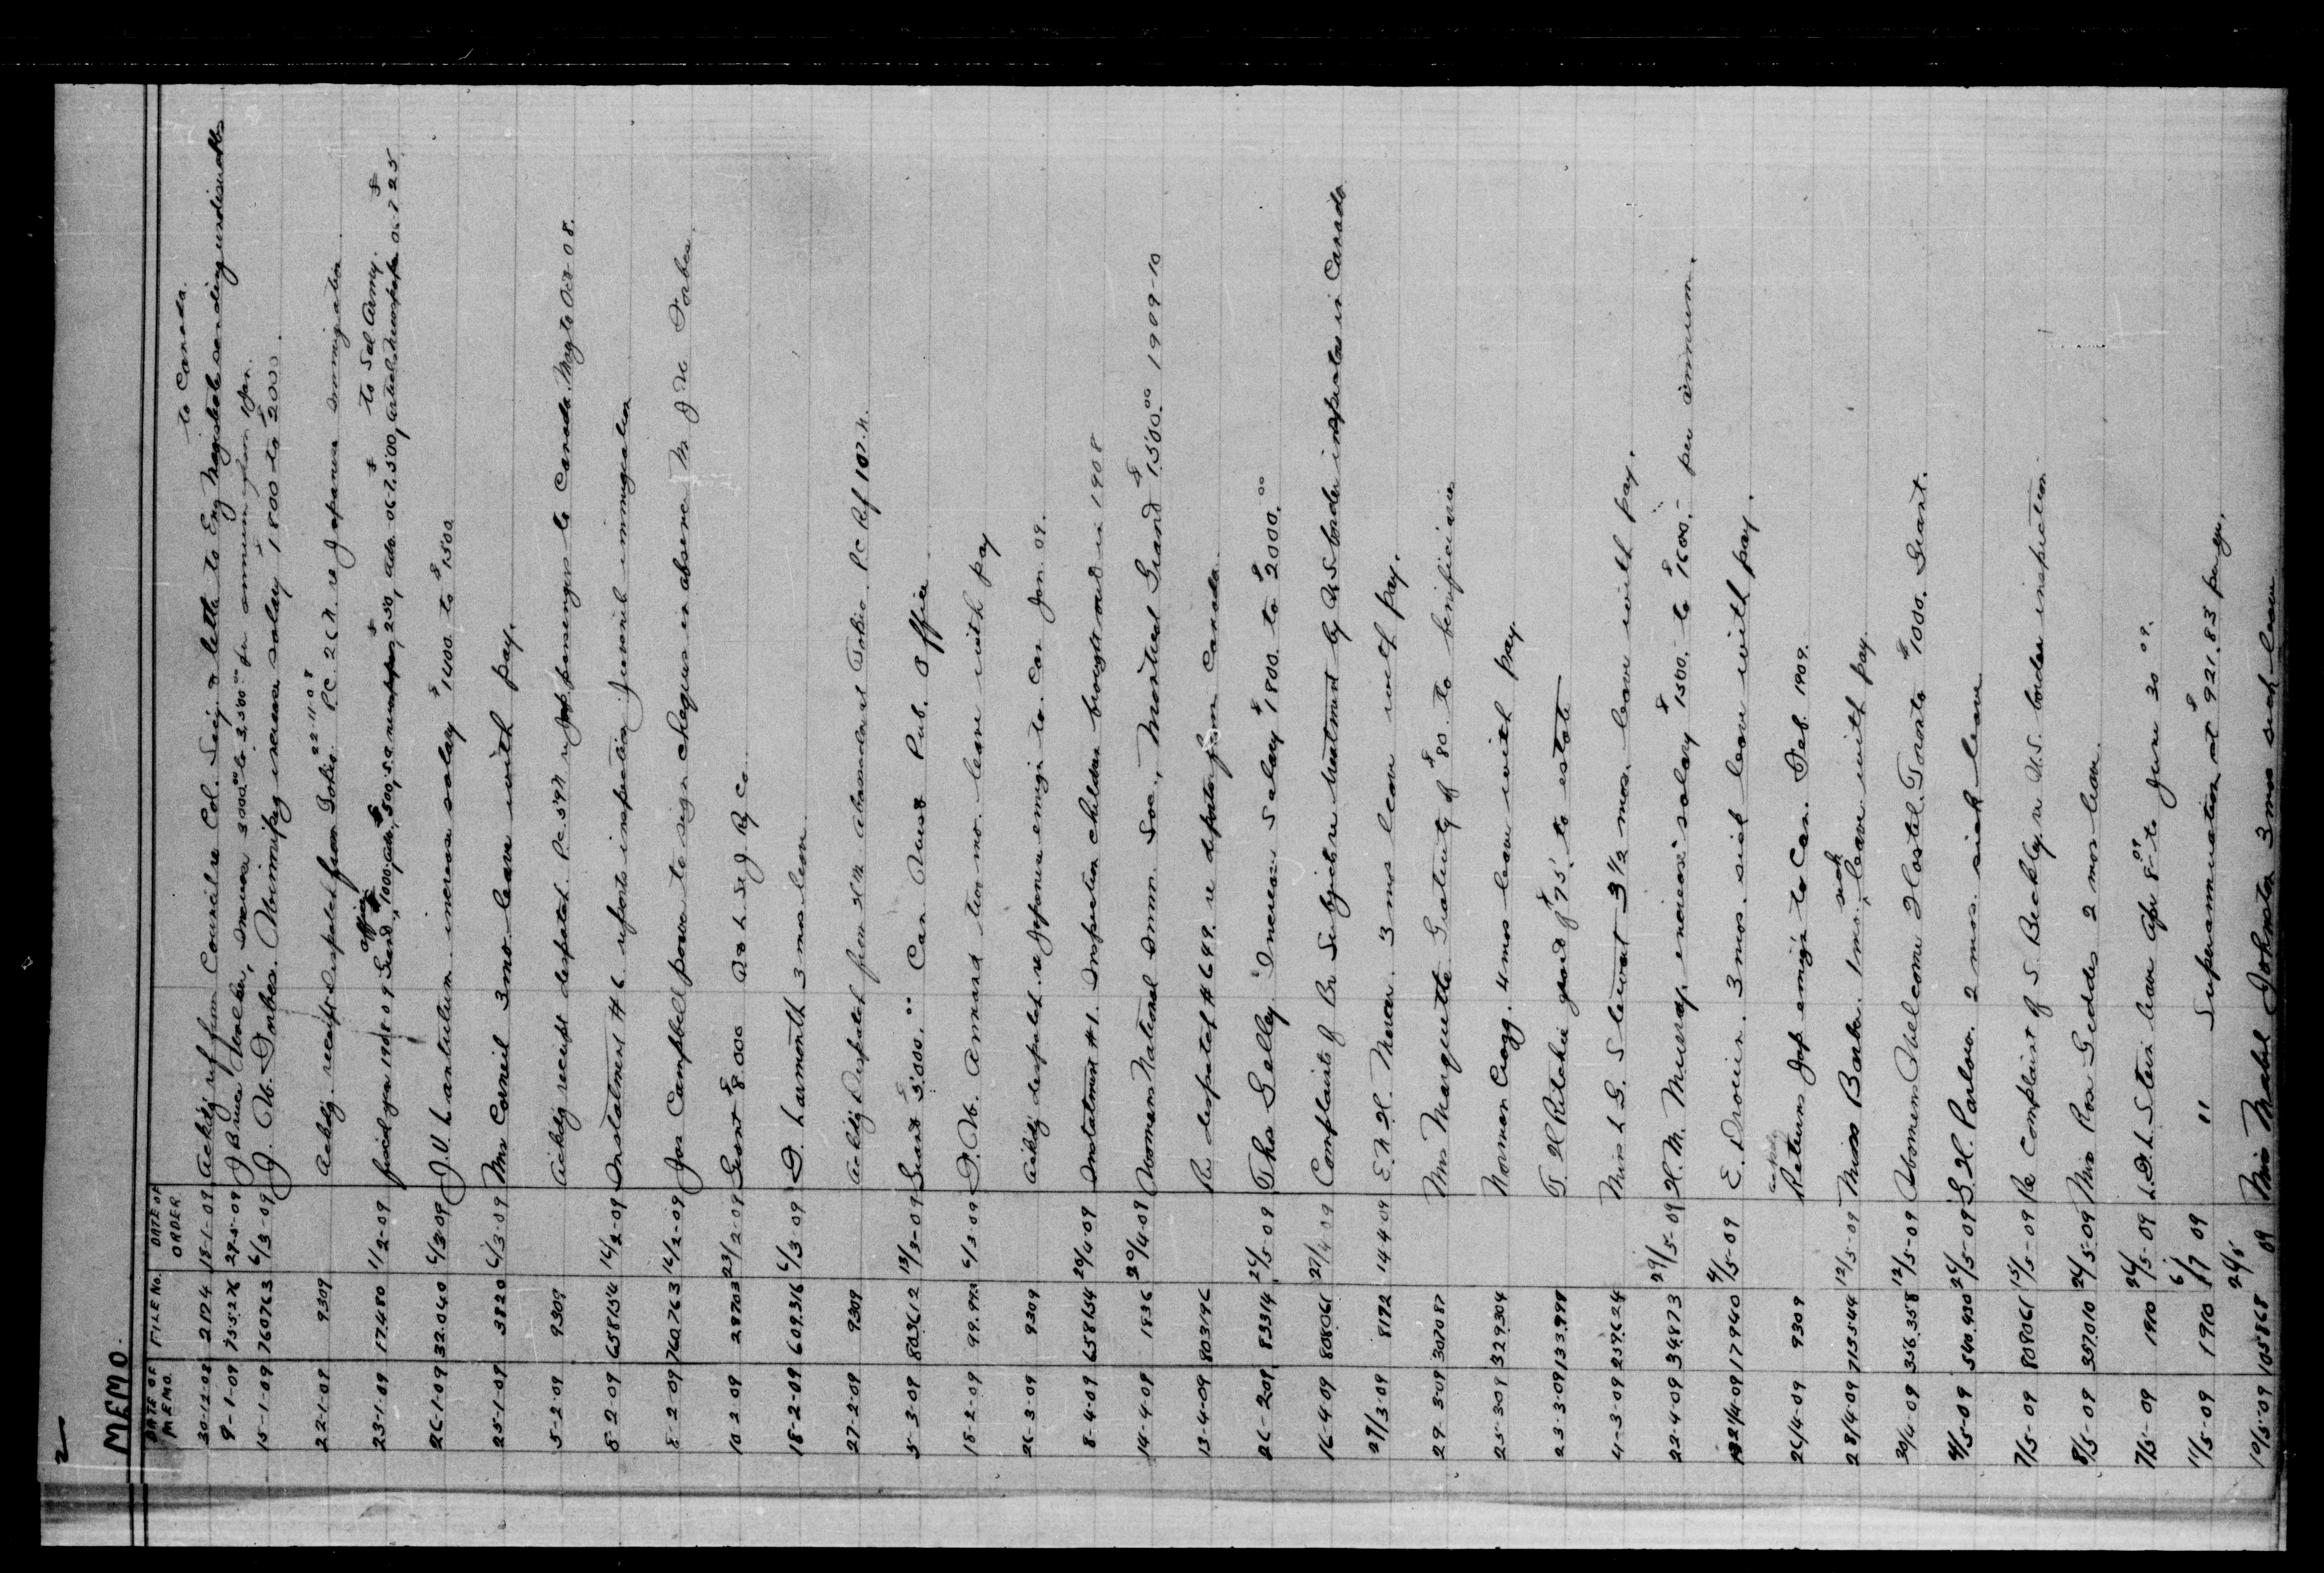 2
MEMO.
DATE OF MEMO. FILE NO. DATE OF ORDER
to Canada.
30-12-08 2174 18-1-09 Ackdg ref from Council re Col. Secy's letter to Eng Magistrate sending undesirables
9-1-09 755276 29-5-09 J Bruce Walker, increase 3000.00 to 3,500.00 per annum from 1 Jan.
15-1-09 760763 6/3-09 J. W. Forbes. Winnipeg increase salary $1800 to $2000.
22-1-09 9309 Ackdg. receipt despatch from Tokio 22-11-08 P.C. 26N. re Japanese immigration
23-1-09 17480 11/2-09 fiscal year 1908 09 Grand, $1000, adv. $500, S.A. newspaper $250, adv. 06-7, $500, to Sal Army. 06-7 $25
26-1-09 32.040 6/3-09 J. V. Lantalum increase salary $1400 to $1500
25-1-09 3820 6/3-09 Mrs Corneil 3 mo leave with pay.
5-2-09 9309 Ackdg receipt despatch P.C. 59N re Jap passengers to Canada May to Oct-08.
8-2-09 658154 16/2-09 Instalment #6 reports inspection juvenile immigration
8-2-09 760763 16/2-09 Jas Campbell power to sign cheques in absence Mr J W Forbes.
10-2-09 28703 23/2-09 Grant $8000 Q & L St J Ry Co.
18-2-09 609.316 6/3-09 D. Larmonth 3 mos leave.
27-2-09 9309 Ackdg Despatch from H M Ambassador at Tokio P.C. Ref 107.N.
5-3-09 803612 13/3-09 Grant $5,000.00 Can News Pub. Office
18-2-09 99.992 6/3-09 D. W. Annand two mo. leave with pay
26-3-09 9309 Ackdg despatch re Japanese emigr to. Can Jan. 09.
8-4-09 658154 20/4-09 Instalment #1. Inspection children brought out in 1908
14-4-09 1836 20/4-09 Womans National Imm. Soc., Montreal Grand $1500.00 1909-10
13-4-09 803196 Re despatch #6649. re deports from Canada
26-2-09 83314 26/5-09 Thos Gelley Increase Salary $1800. to $2000.00
16-4-09 808061 27/4-09 Complaints of Br Subjects re treatment by US border inspectors in Canada
29/3-09 8172 14 4 09 E. N. H. Mercer. 3 mos leave with pay.
29-3-09 307087 Mrs Marquette Gratuity of $80. to beneficiaries
25-3-09 329304 Norman Cragg. 4 mos leave with pay
23-3-09 133.998 T H Ritchie grat of $75. to estate
4-3-09 259624 Miss L G. Stewart 3 1/2 mos. leave with pay.
22-4-09 34873 29/5-09 H. M. Murray, increase salary $1500. to $1600.- per annum.
22/4-09 17940 4/5-09 E. Drouin. 3 mos. sick leave with pay.
26/4-09 9309 ackdg Returns Jap emigr to Can. Feb. 1909.
28/4-09 713544 12/5-09 Miss Barber. 1 mo. sick leave with pay
30/4-09 356.358 12/5-09 Womens Welcome Hostel. Toronto $1000. Grant.
4/5-09 540.430 26/5-09 G. H. Parlow. 2 mos. sick leave
7/5-09 808061 15/5-09 Re Complaint of S. Beckley. re U.S. border inspection
8/5-09 357010 26/5-09 Miss Rose Geddes 2 mos leave
7/5-09 1910 26/5-09 L. D. L. Stein leave Apr 8-09 to June 30 09.
11/5-09 1910 6/7 09 " Superannuation at $921.83 per yr.
10/5-09 105868 26/5-09 Miss Mabel Johnston 3 mos sick leave